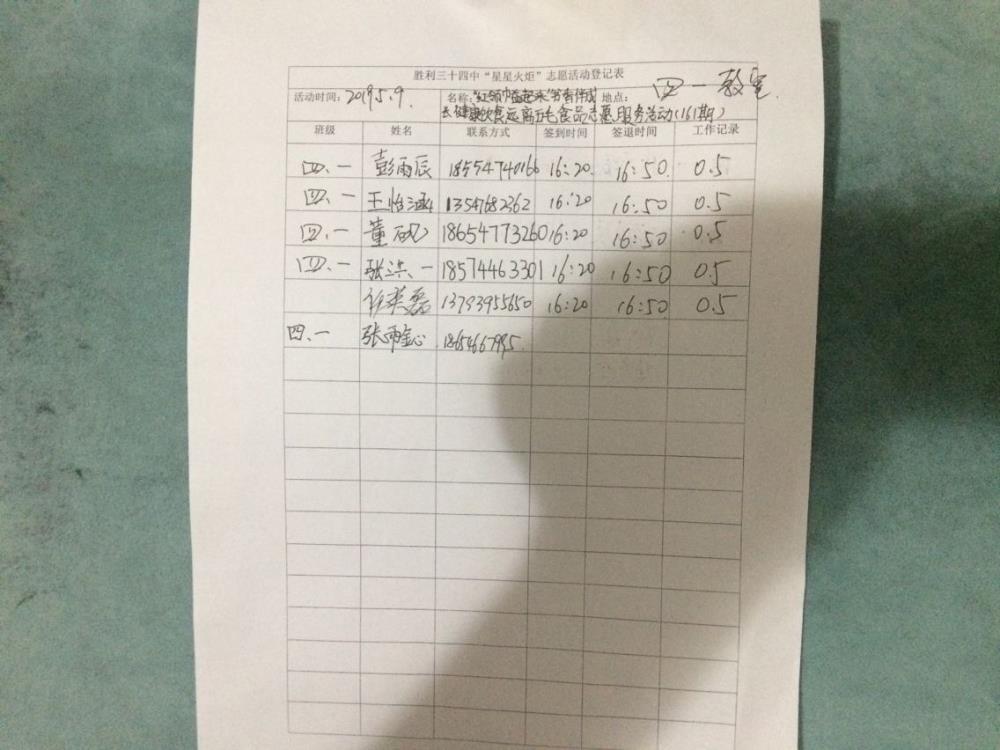 胜利三十四中“星星火炬”志愿活动登记表
活动时间：2019.5.9. 名称：“红领巾益起来”书香伴成 地点：四一教室
长健康饮食远离五毛食品志愿服务活动（161期）
班级 姓名 联系方式 签到时间 签退时间 工作记录
四.一 彭雨辰 18554740166 16:20 16:50 0.5
四.一 王怡涵 13547682362 16:20 16:50 0.5
四.一 董 18654773260 16:20 16:50 0.5
四.一 张洪一 18574463301 16:20 16:50 0.5
磊 13793955650 16:20 16:50 0.5
四.一 张雨鑫